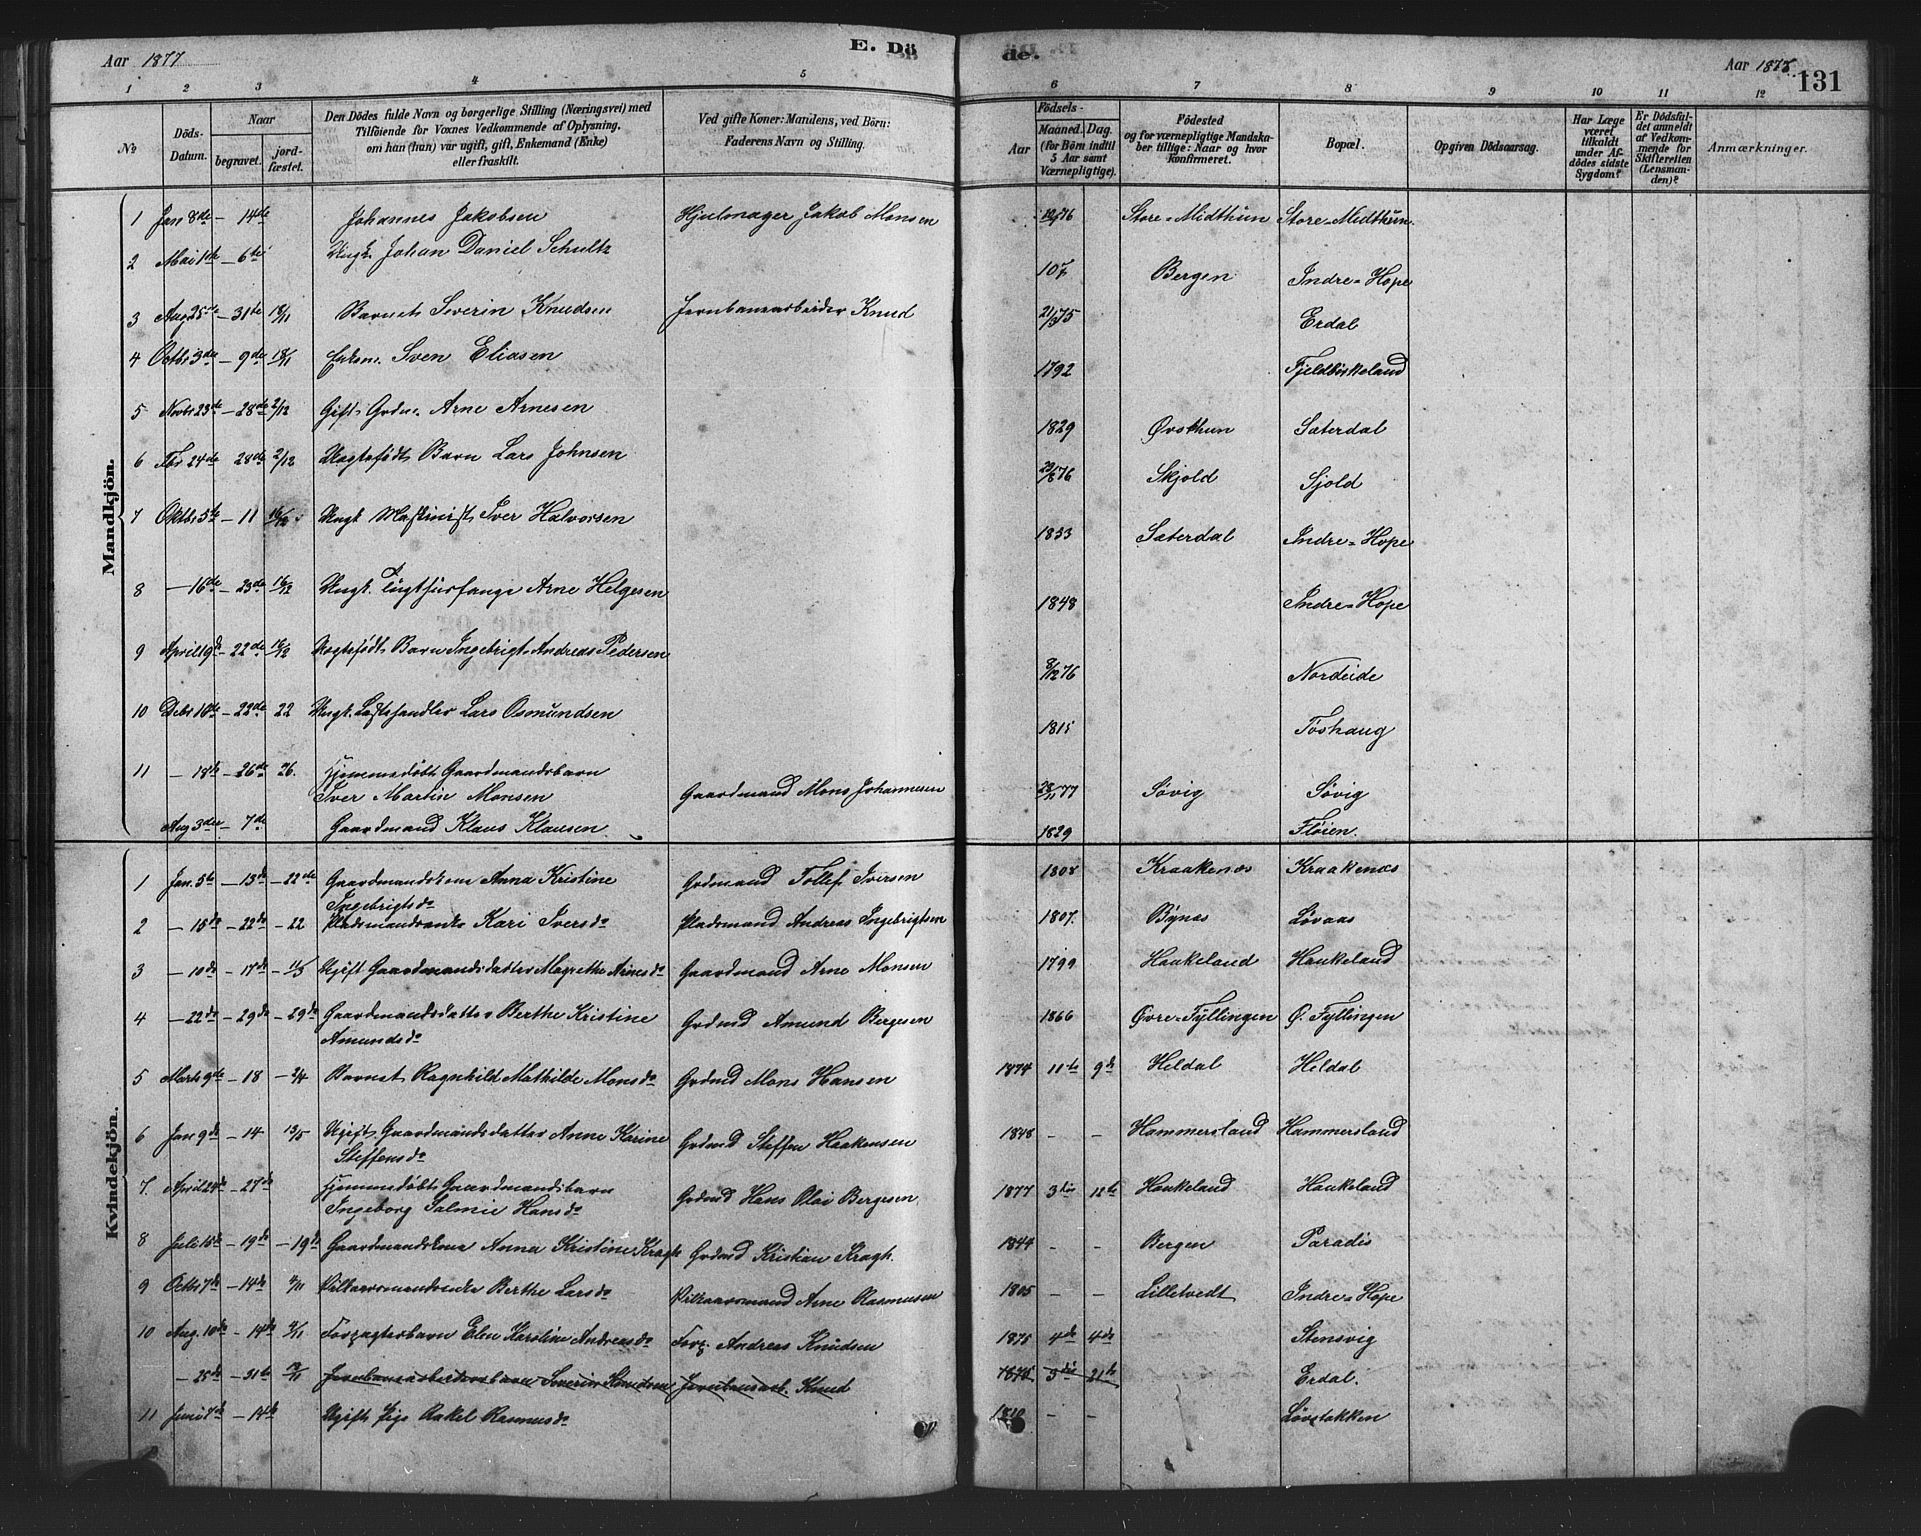 Aar 1877 E. Dö
de. Aar 1877. 131
1 2 3 4 5 6 7 8 9 10 11 12
No
Döds-Datum.
Naar
begravet.
jord-fæstet.
Den Dödes fulde Navn og borgerlige Stilling (Næringsvei) med
Tilföiende for Voxnes Vedkommende af Oplysning,
om han (hun) var ugift, gift, Enkemand (Enke)
eller fraskilt.
Ved gifte Koner: Mandens, ved Börn:
Faderens Navn og Stilling.
Födsels-
Aar
Maaned. Dag.
(for Börn indtil
5 Aar samt
Værnepligtige).
Födested
og for værnepligtige Mandska-
ber tillige: Naar og hvor
Konfirmeret.
Bopæl.
Opgiven Dödsaarsag.
Har Læge
været
tilkaldt
under Af-
dödes sidste
Sygdom?
Er Dödsfal-
det anmeldt
af Vedkom-
mende for
Skifteretten
(Lensman-
den)?
Anmærkninger.
Mandkjön.
1 Jan 8de – 14de Johannes Jakobsen Hjulmager Jakob Monsen 76 Store-Midthun Store-Midthun.
2 Mai 1ste – 6te Ungk. Johan Daniel Schultz Bergen Indre-Hope
3 Aug 25de – 31te 18/11 Barnet Severin Knudsen Jernbanearbeider Knud 21/3 75 Erdal
4 Octbr 3die – 9de 18/11 Enkem. Sven Eliasen 1792 Fjeldbirkeland
5 Novbr 23de – 28de 2/12 Gift Grdm. Arne Arnesen 1829 Øvsthun Sæterdal
6 24de 28de 2/12 Uægtefødt Barn Lars Johnsen 76 Skjold Sjold
7 Oktbr 5te – 11 16/12 Ungk. Maskinist Iver Halvorsen 1833 Sæterdal Indre-Hope
8 – 16de – 23de 16/12 Ungk. Tugthusfange Arne Helgesen 1848 Indre-Hope
9 April 19de – 22de 16/12 Uægtefødt Barn Ingebrigt Andreas Pedersen 8/12 76 Nordeide
10 Debr 16de – 22de 22 Ungk. Lars Osmundsen 1815 Toshaug
11 – 18de – 26de 26. Hjemmedøbt Gaardmandsbarn
Iver Martin Monsen Gaardmand Mons Johannesen 28/11 77 Søvig Søvig
Aug 3die – 7de Gaardmand Klaus Klausen 1829 Fløien.
Kvindekjön.
1 Jan. 5te – 13de – 22de Gaardmandskone Anna Kristine
Ingebrigtsdr Grdmand Tollef Iversen 1808 Kraakenæs Kraakenæs
2 – 15de – 22de – 22 Pladsmandsenke Kari Iversdr Pladsmand Andreas Ingebrigtsen 1807. Bynæs Løvaas
3 – 10de – 17de – 11/3 Ugift Gaardmandsdatter Magrethe Arnesdr Gaardmand Arne Monsen 1799 Haukeland Haukeland
4 – 22de – 29de – 29de Gaardmandsdatter Berthe Kristine
Amundsdr Grdmd Amund Bergesen 1866 Øvre-Fyllingen Ø. Fyllingen
5 Marts 9de – 18 – 2/4 Barnet Ragnhild Mathilde Monsdr Grdmd Mons Hansen 1874 11te 9de Heldal Heldal
6 Jan 9de – 14 13/5 Ugift Gaardmandsdatter Anne Karine
Steffensdr Grdmd Steffen Haakensen 1848 – – Hammersland Hammersland
7. April 24de – 27de Hjemmedøbt Gaardmandsbarn
Ingeborg Salmine Hansdr Grdmd Hans Olai Bergesen 1877 3die 12te Haukeland Haukeland
8 Juli 15de – 19de – 19de Gaardmandskone Anna Kristine Kragh Grdmd Kristian Kragh. 1844 – – Bergen Paradis
9 Octbr 7de – 14de 4/11 Vilkaarsmandsenke Berthe Larsdr Vilkaarsmand Arne Rasmusen 1805 – – Lilletvedt Indre-Hope
10 Aug. 10de – 14de Forpagterbarn Elen Karoline Andreasdr Forp. Andreas Knudsen 1875 4de 4de Stensvig
– 25de – 31te Jernbanearbeiderbarn Severin Knudsen Jernbanearb. Knud 1875 3die 21de Erdal.
11 Juni 7de – 14de Ugift Pige Rakel Rasmusdr – – Løvstakken